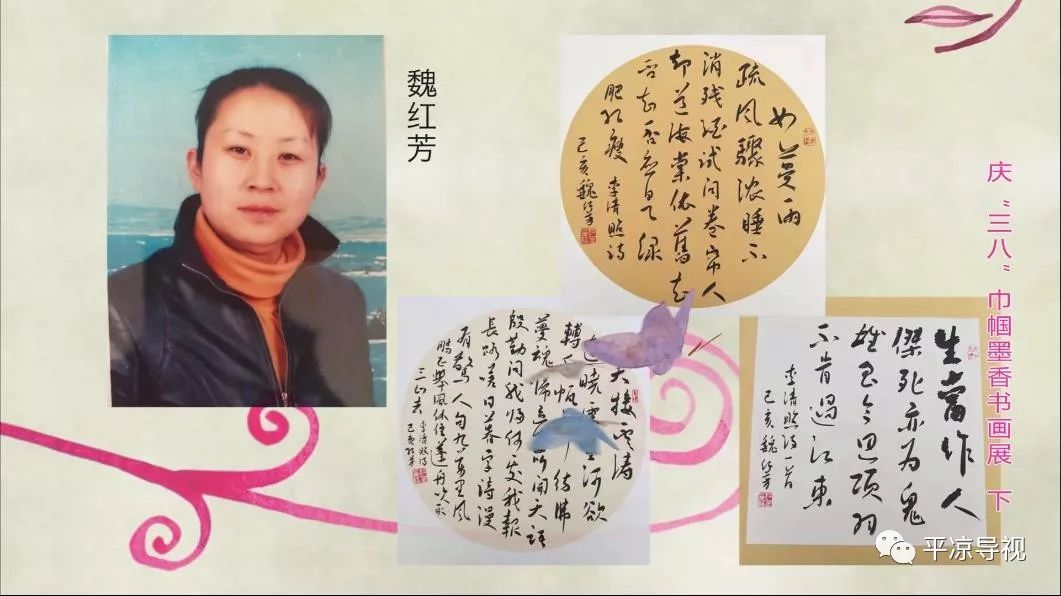 魏红芳
如夢雨
疏风驟浓睡不
消残酒试问卷帘人
却道海棠依舊知
否知否应是绿
肥红瘦 李清照诗
己亥魏红芳
天接雲涛
晓 河欲
轉千帆
夢魂归 所闻天语
殷勤问我归何处我報
長路嗟日暮学诗漫
有驚人句九万里风
鹏正举風休住蓬舟吹取
三山去 李清照诗 己亥红芳
生當作人
傑死亦为鬼
雄至今思項羽
不肯過江東
李清照诗一首
己亥魏红芳
庆“三八”巾帼墨香书画展 下
平凉导视